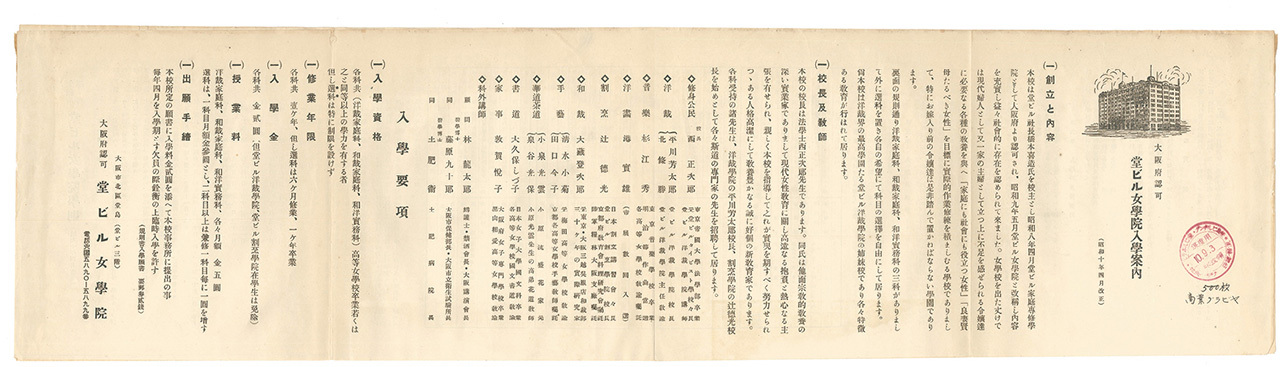 大阪府認可
堂ビル女學院入學案内
(昭和十年四月改正)
10.9.3
500枚
(一) 創立と内容
本校は堂ビル社長橋本喜造氏を校主とし昭和八年四月堂ビル家庭專修學
院として大阪府より認可され、昭和九年五月堂ビル女學院と改稱し内容
を充實し益々社會的に存在を認められて來ました。女學校を出た丈けで
は現代婦人として又一家の主婦として立つ上に不足を感ぜられる令孃達
に必要なる各種の教養を與へ「家庭にも社會にも役立つ女性」「良妻賢
母たるべき女性」を目標に實際的作業修練を積ましむる學校でありまし
て、特にお嫁入り前の令孃達は是非踏んで置かねばならない學園であり
ます。
裏面の規則通り洋裁家庭科、和裁家庭科、和洋實務科の三科がありまし
て外に選科を置き各自の希望にて科目の選擇を自由にして居ります。
尙本校は洋裁界の最高學園たる堂ビル洋裁學院の姉妹校であり各々特徴
ある教育が行はれて居ります。
(一) 校長及教師
本校の校長は法學士西正次郎先生であります。同氏は他面宗教的教養の
深い實業家でありまして現代女性教育に關し高遠なる抱負と熱心なる主
張を有せられ、親しく本校を指導して之れが實現を期すべく努力せられ
つゝある人格高潔にして教養豊かなる誠に好個の新教育家であります。
各科受持の諸先生は、洋裁學院の平川芳太郎校長、割烹學院の辻德光校
長を始めとして各々斯道の專門家の先生を招聘して居ります。
◇修身公民 西正次郎
◇洋裁 平川芳太郎
北條勝
◇音樂 杉江秀
◇洋畫 鴻實雄
◇割烹 辻德光
◇和裁 大藏登久
◇手藝 清水小菊
田口今子
◇華道茶道 小泉光雲
泉谷光保
◇書道 大久保しづ子
◇家事 敦賀悅子
◇科外講師
顧問 林龍太郎 辯護士
同 藤原九十郎
同 土肥衛 土肥病院長
入學要項
(一) 入學資格
各科共(洋裁家庭科、和裁家庭科、和洋實務科)高等女學校卒業若くは
之と同等以上の學力を有する者
但し選科は特に制限を設けず
(一) 修業年限
各科共 壹ケ年、但し選科は六ケ月修業、一ケ年卒業
(一) 入學金
各科共 金貳圓(但堂ビル洋裁學院、堂ビル割烹學院在學生は免除)
(一) 授業料
洋裁家庭科、和裁家庭科、和洋實務科、各々月額 金五圓
選科は、一科目月額金參圓とし、二科目以上は兼修一科目每に一圓を増す
(一) 出願手續
本校所定の願書に入學料金貳圓を添へて本校事務所に提出の事
每年四月を入學期とす欠員の際銓衡の上臨時入學を許す
(規則書入學願書 要郵券貳錢)
大阪市北區堂島(堂ビル三階)
大阪府認可 堂ビル女學院